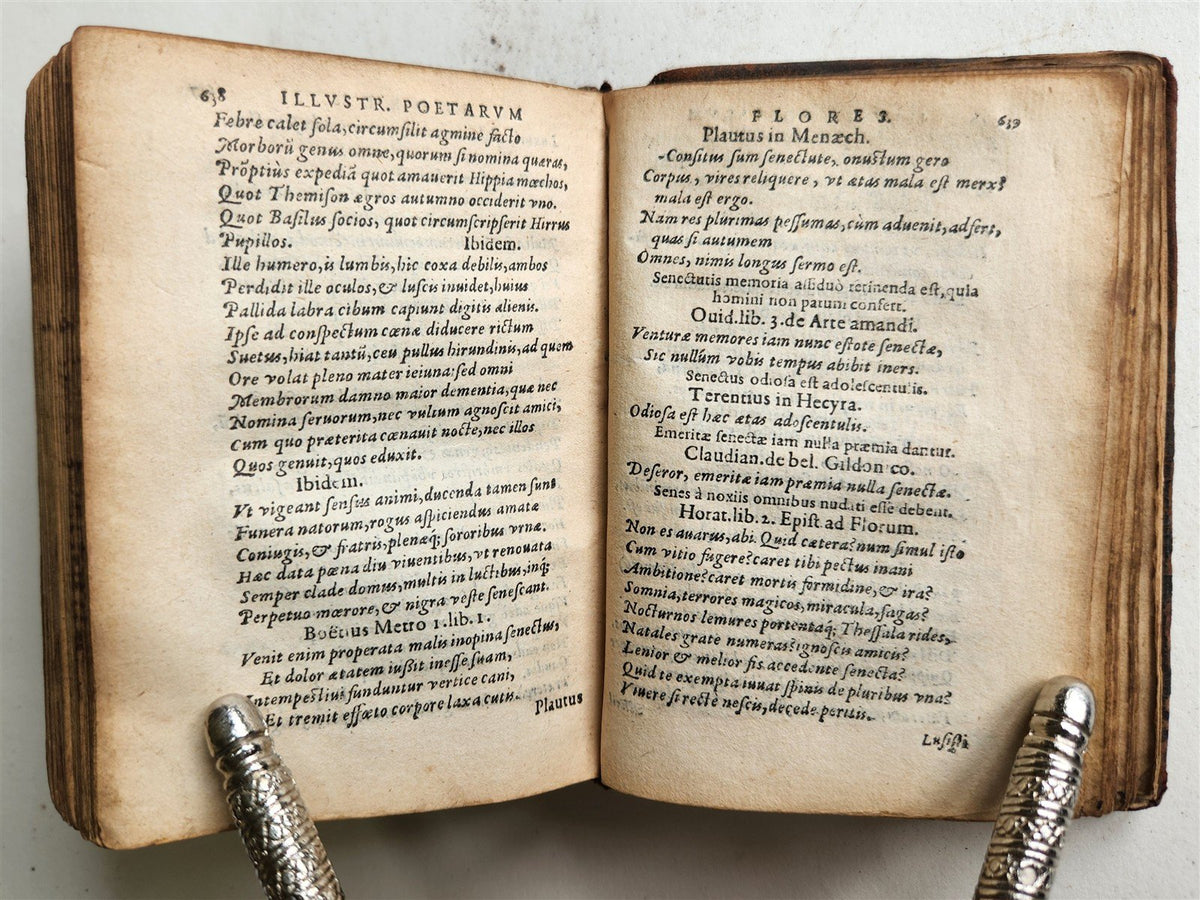 638 ILLVSTR. POETARVM
Febre calet sola, circumsilit agmine facto
Morborū genus omne, quorum si nomina quæras,
Prõptiùs expediā quot amauerit Hippia mœchos,
Quot Themison ægros autumno occiderit vno.
Quot Basilus socios, quot circumscripserit Hirrus
Pupillos. Ibidem.
Ille humero, is lumbis, hic coxa debilis, ambos
Perdidit ille oculos, & luscis inuidet, huius
Pallida labra cibum capiunt digitis alienis.
Ipse ad conspectum cœnæ diducere rictum
Suetus, hiat tantũ, ceu pullus hirundinis, ad quem
Ore volat pleno mater ieiuna: sed omni
Membrorum damno maior dementia, quæ nec
Nomina seruorum, nec vultum agnoscit amici,
Cum quo præterita cœnauit nocte, nec illos
Quos genuit, quos eduxit.
Ibidem.
Vt vigeant sensus animi, ducenda tamen sunt
Funera natorum, rogus aspiciendus amatæ
Coniugis, & fratris, plenæq; sororibus vrnæ.
Hæc data pœna diu viuentibus, vt renouata
Semper clade domus, multis in luctibus, inq;
Perpetuo mœrore, & nigra veste senescant.
Boëtius Metro 1. lib. 1.
Venit enim properata malis inopina senectus,
Et dolor ætatem iußit inesse suam,
Intempestiui funduntur vertice cani,
Et tremit effæto corpore laxa cutis.
Plautus
FLORES. 639
Plautus in Menæch.
Consitus sum senectute, onustum gero
Corpus, vires reliquere, vt ætas mala est merx?
mala est ergo.
Nam res plurimas pessumas, cùm aduenit, adfert,
quas si autumem
Omnes, nimis longus sermo est.
Senectutis memoria assiduò retinenda est, quia
homini non parum confert.
Ouid. lib. 3. de Arte amandi.
Venturæ memores iam nunc estote senectæ,
Sic nullum vobis tempus abibit iners.
Senectus odiosa est adolescentulis.
Terentius in Hecyra.
Odiosa est hæc ætas adoscentulis.
Emeritæ senectæ iam nulla præmia dantur.
Claudian. de bel. Gildonico.
Deseror, emeritæ iam præmia nulla senectæ.
Senes à noxiis omnibus nudati esse debent.
Horat. lib. 2. Epist. ad Florum.
Non es auarus, abi. Quid cætera? num simul isto
Cum vitio fugere? caret tibi pectus inani
Ambitione? caret mortis formidine, & ira?
Somnia, terrores magicos, miracula, sagas?
Nocturnos lemures portentaq; Thessala rides,
Natales grate numeras? ignoscis amicis?
Lenior & melior fis accedente senecta?
Quid te exempta iuuat spinis de pluribus vna?
Viuere si recte nescis, decede peritis.
Lusisti